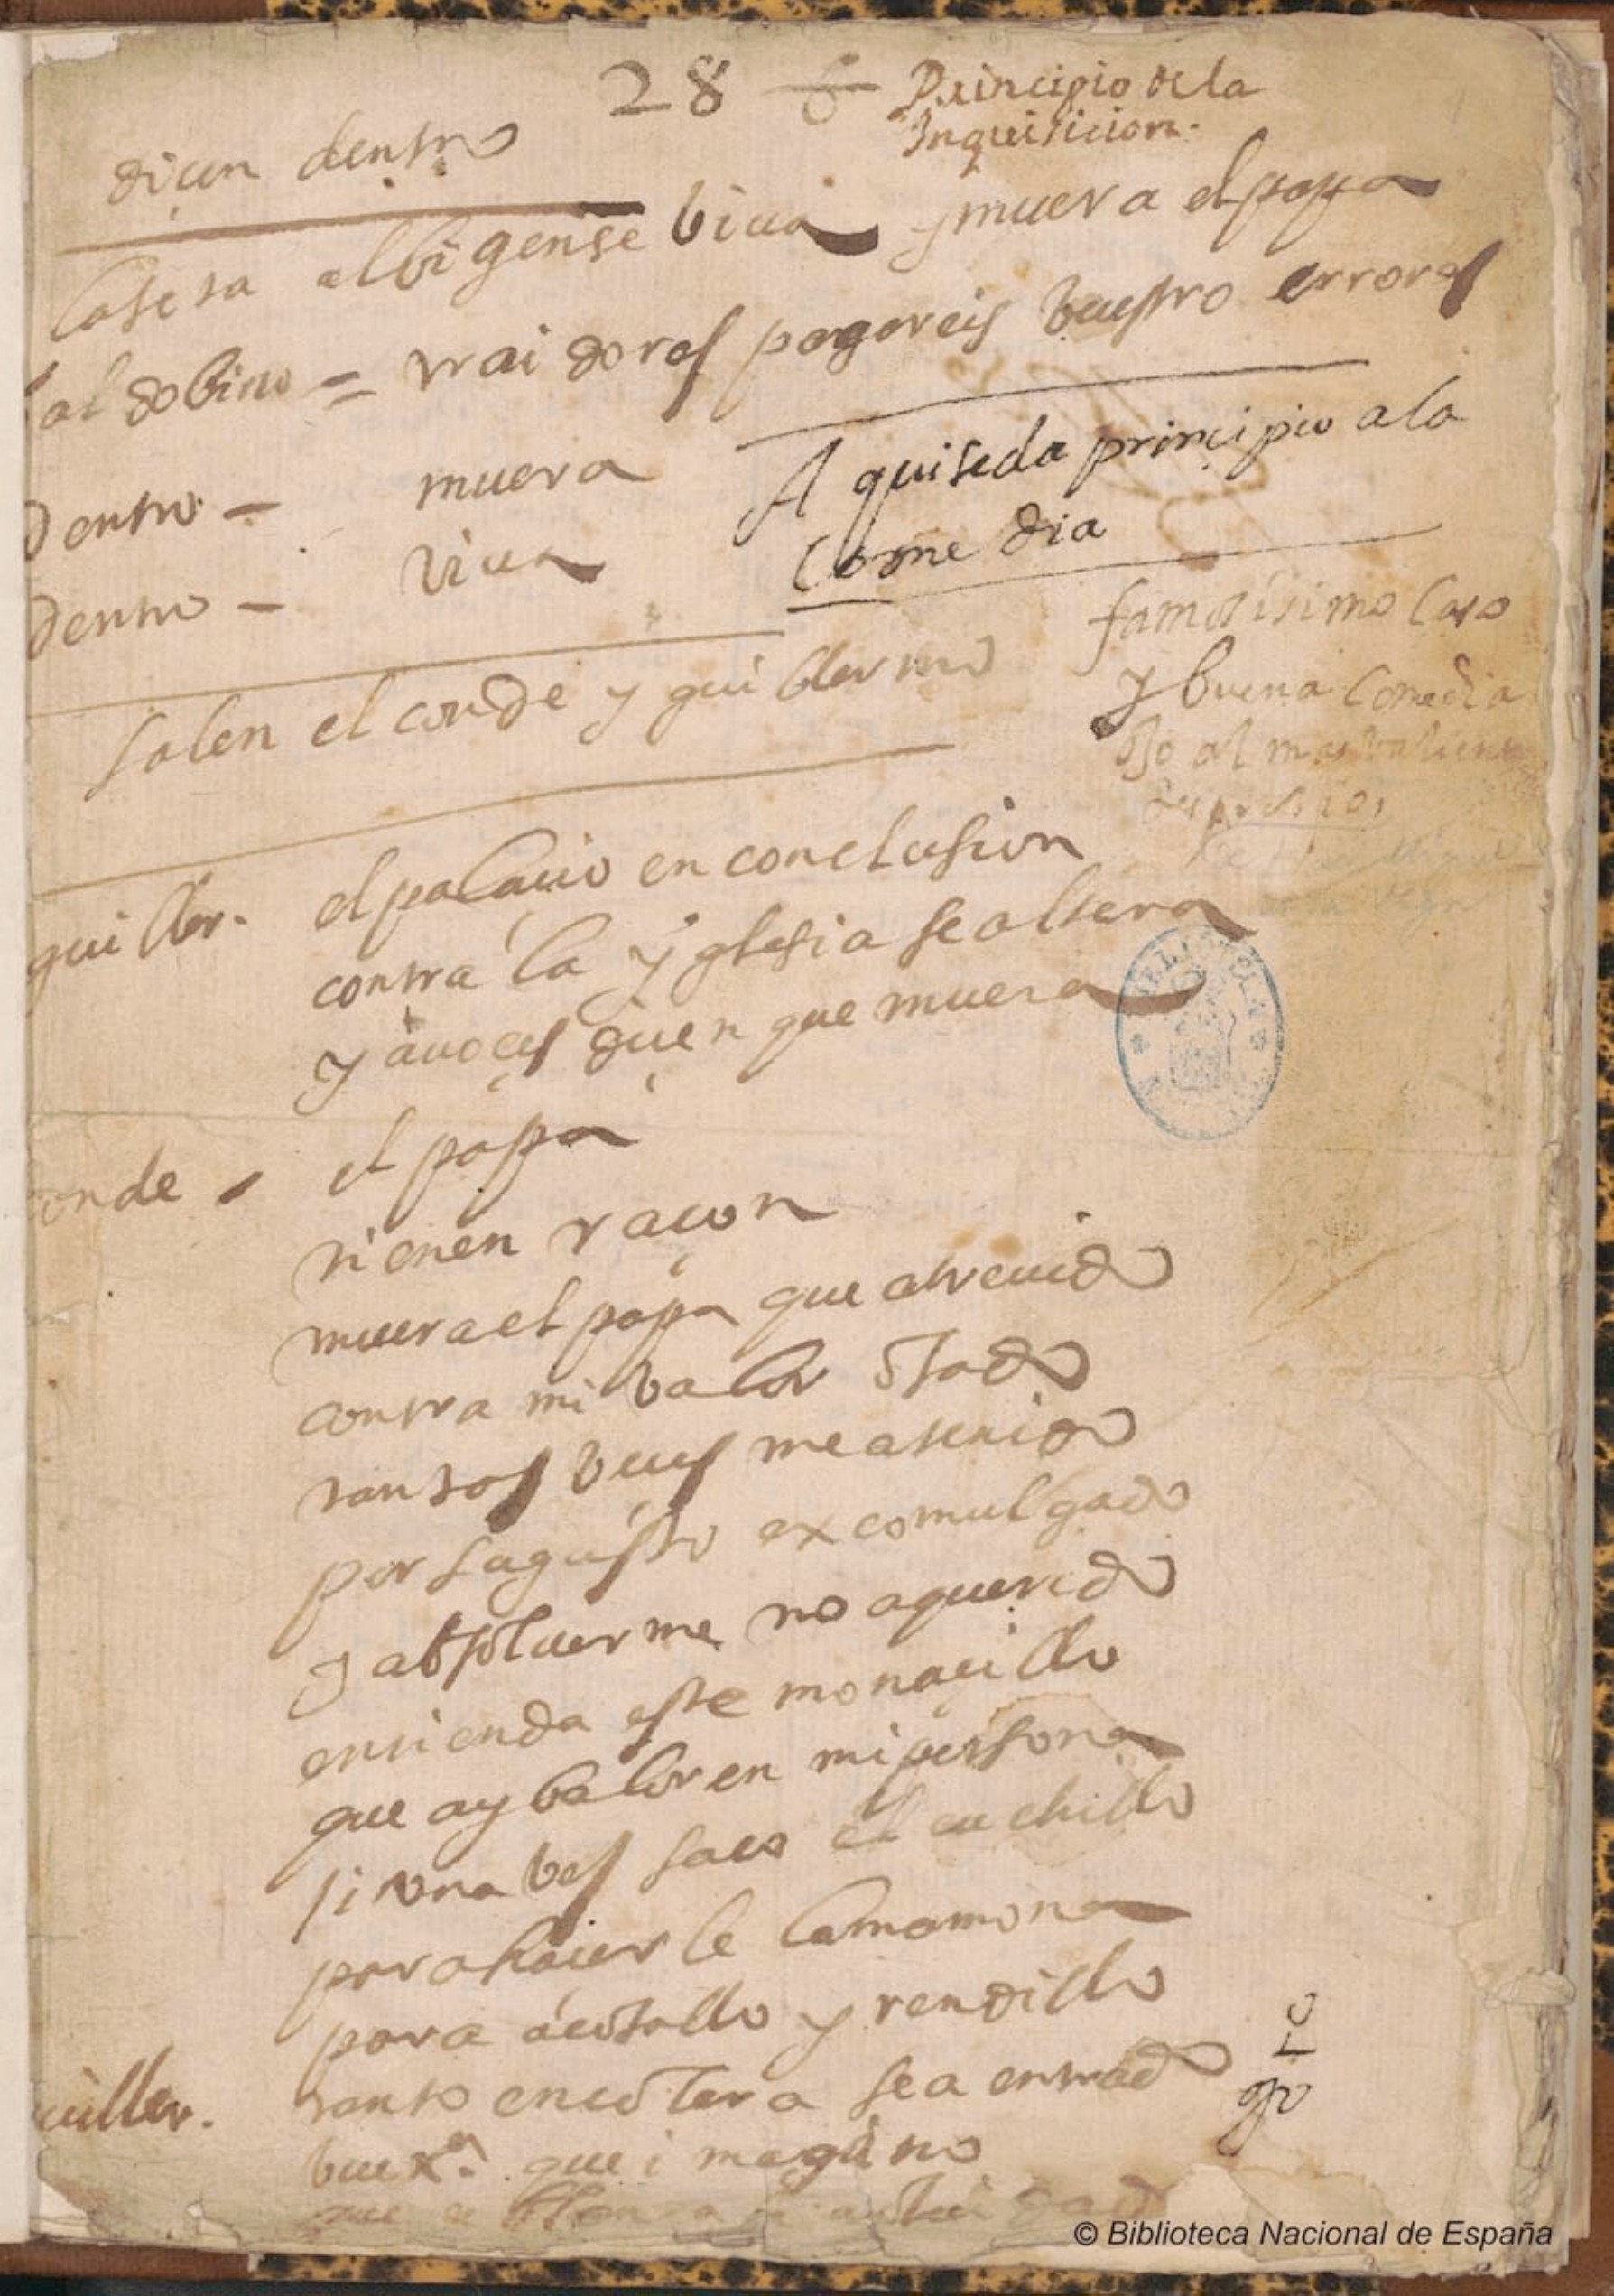 28 6 Principio de la
Inquisicion.
dicen dentro
la seta albigense biua y muera el papa
baldobino = traidores pagareis buestro errores
dentro – muera
dentro – viua
A qui se da principio a la
Come dia
famosisimo Caso
y buena Comedia
salen el conde y guillermo
guiller. el palaçio en conclusion
contra la yglesia se altera
y a uoçes diçen que muera
el papa
onde – tienen raçon
muera el papa que atreuido
contra mi balor osado
tantas beçes me a tenido
por su gusto excomulgado
y absoluerme no a querido
entienda este monaçillo
que ay balor en mi persona
si una bes saco el cuchillo
para haçerle la mamona
para açotallo y rendillo
uiller. tanto en colera se a entrado
buexa. que imagino
que
© Biblioteca Nacional de España